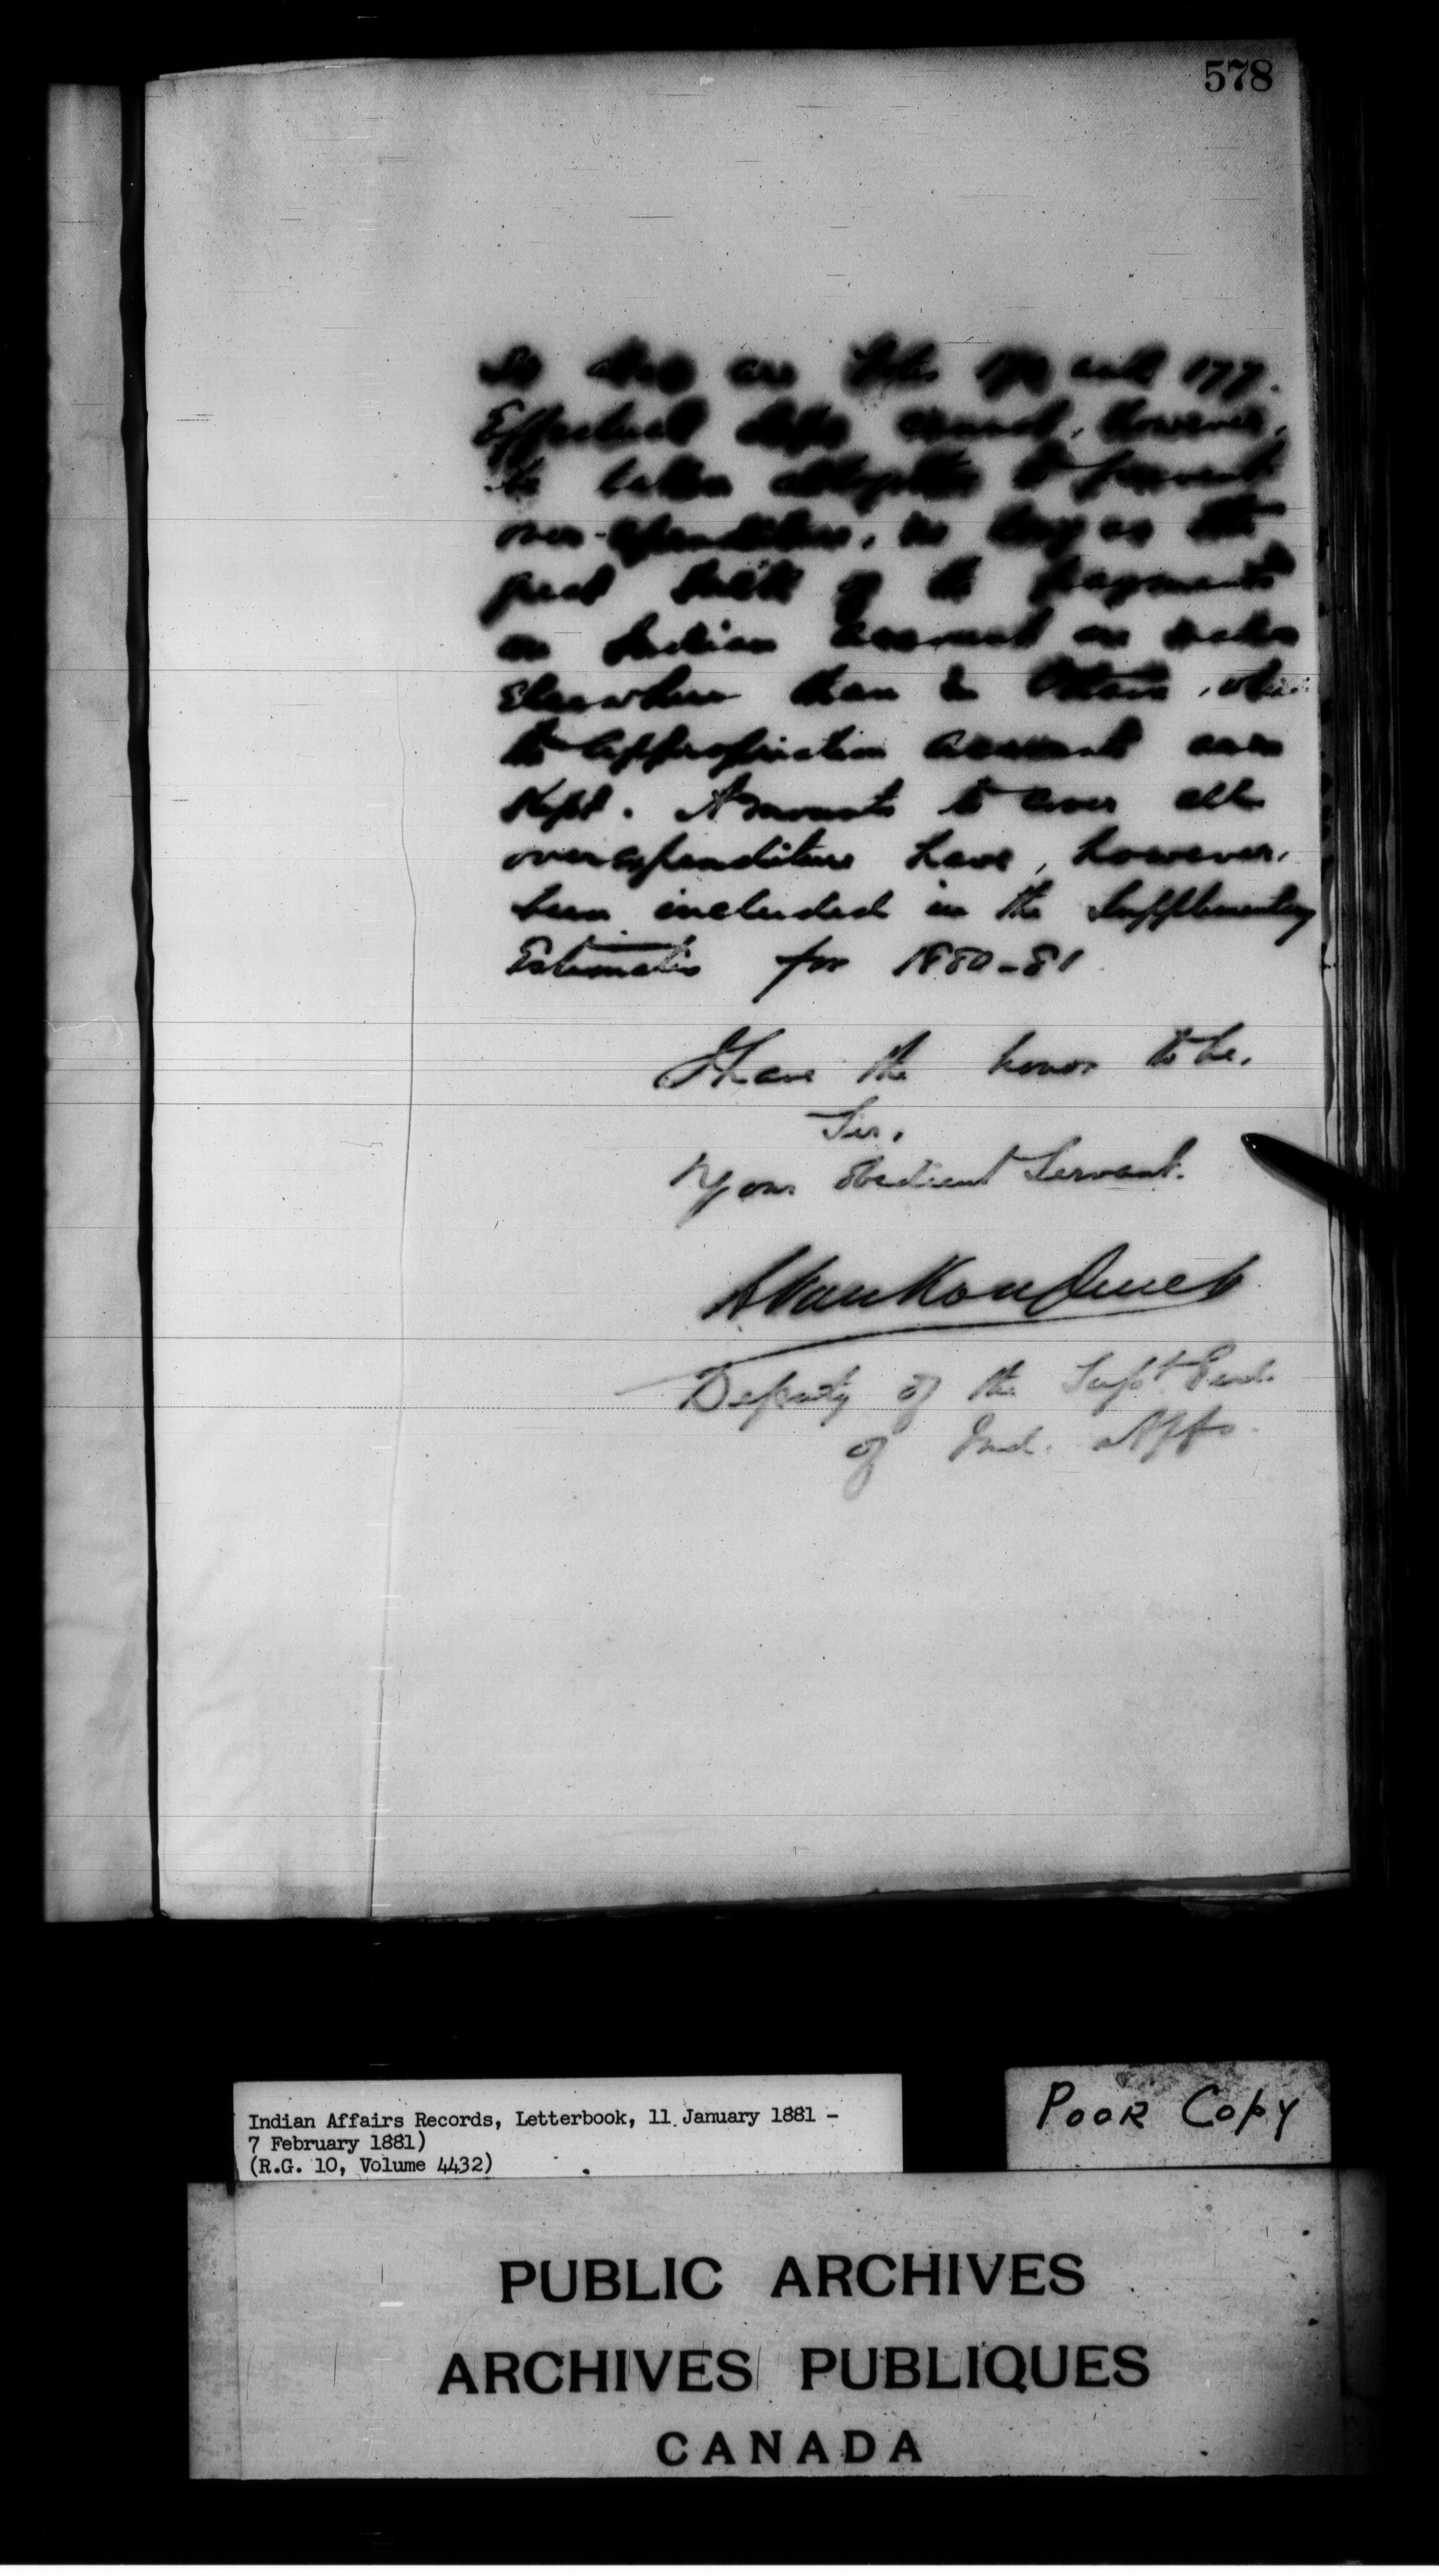 578
are Votes 176 and 177.
Effectual steps cannot, however,
be taken altogether to prevent
over-expenditure, so long as the
great bulk of the payments
on Indian account are made
elsewhere than in Ottawa, where
the Appropriation accounts are
kept. Amounts to cover all
overexpenditure have, however,
been included in the Supplementary
Estimates for 1880-81
I have the honor to be,
Sir,
Your obedient Servant.
L VanKoughnet
Deputy of the Supt Genl.
of Ind. Affs.
Indian Affairs Records, Letterbook, 11 January 1881 -
7 February 1881)
(R.G. 10, Volume 4432)
POOR COPY
PUBLIC ARCHIVES
ARCHIVES PUBLIQUES
CANADA